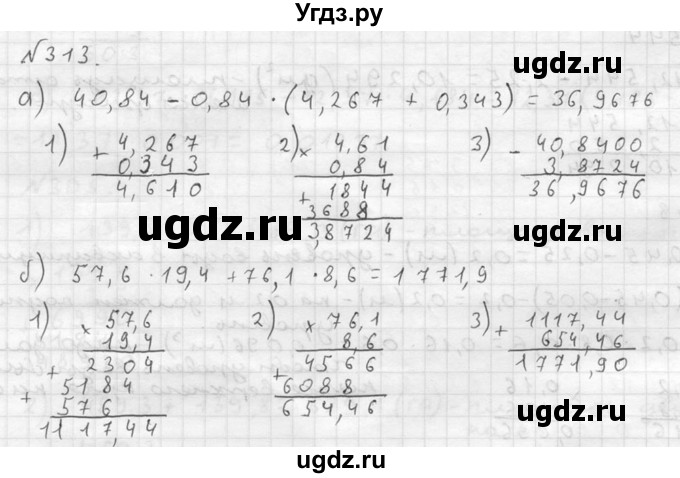 Угдз.ру
№313.
а) 40,84 - 0,84 · (4,267 + 0,343) = 36,9676
1) + 4,267
0,343
4,610
2) × 4,61
0,84
+ 1844
3688
3,8724
3) - 40,8400
3,8724
36,9676
ugdz.ru
ugdz.ru
ugdz.ru
ugdz.ru
б) 57,6 · 19,4 + 76,1 · 8,6 = 1771,9
1) × 57,6
19,4
+ 2304
+ 5184
576
1117,44
2) × 76,1
8,6
+ 4566
6088
654,46
3) + 1117,44
654,46
1771,90
ugdz.ru
ugdz.ru
ugdz.ru
ugdz.ru